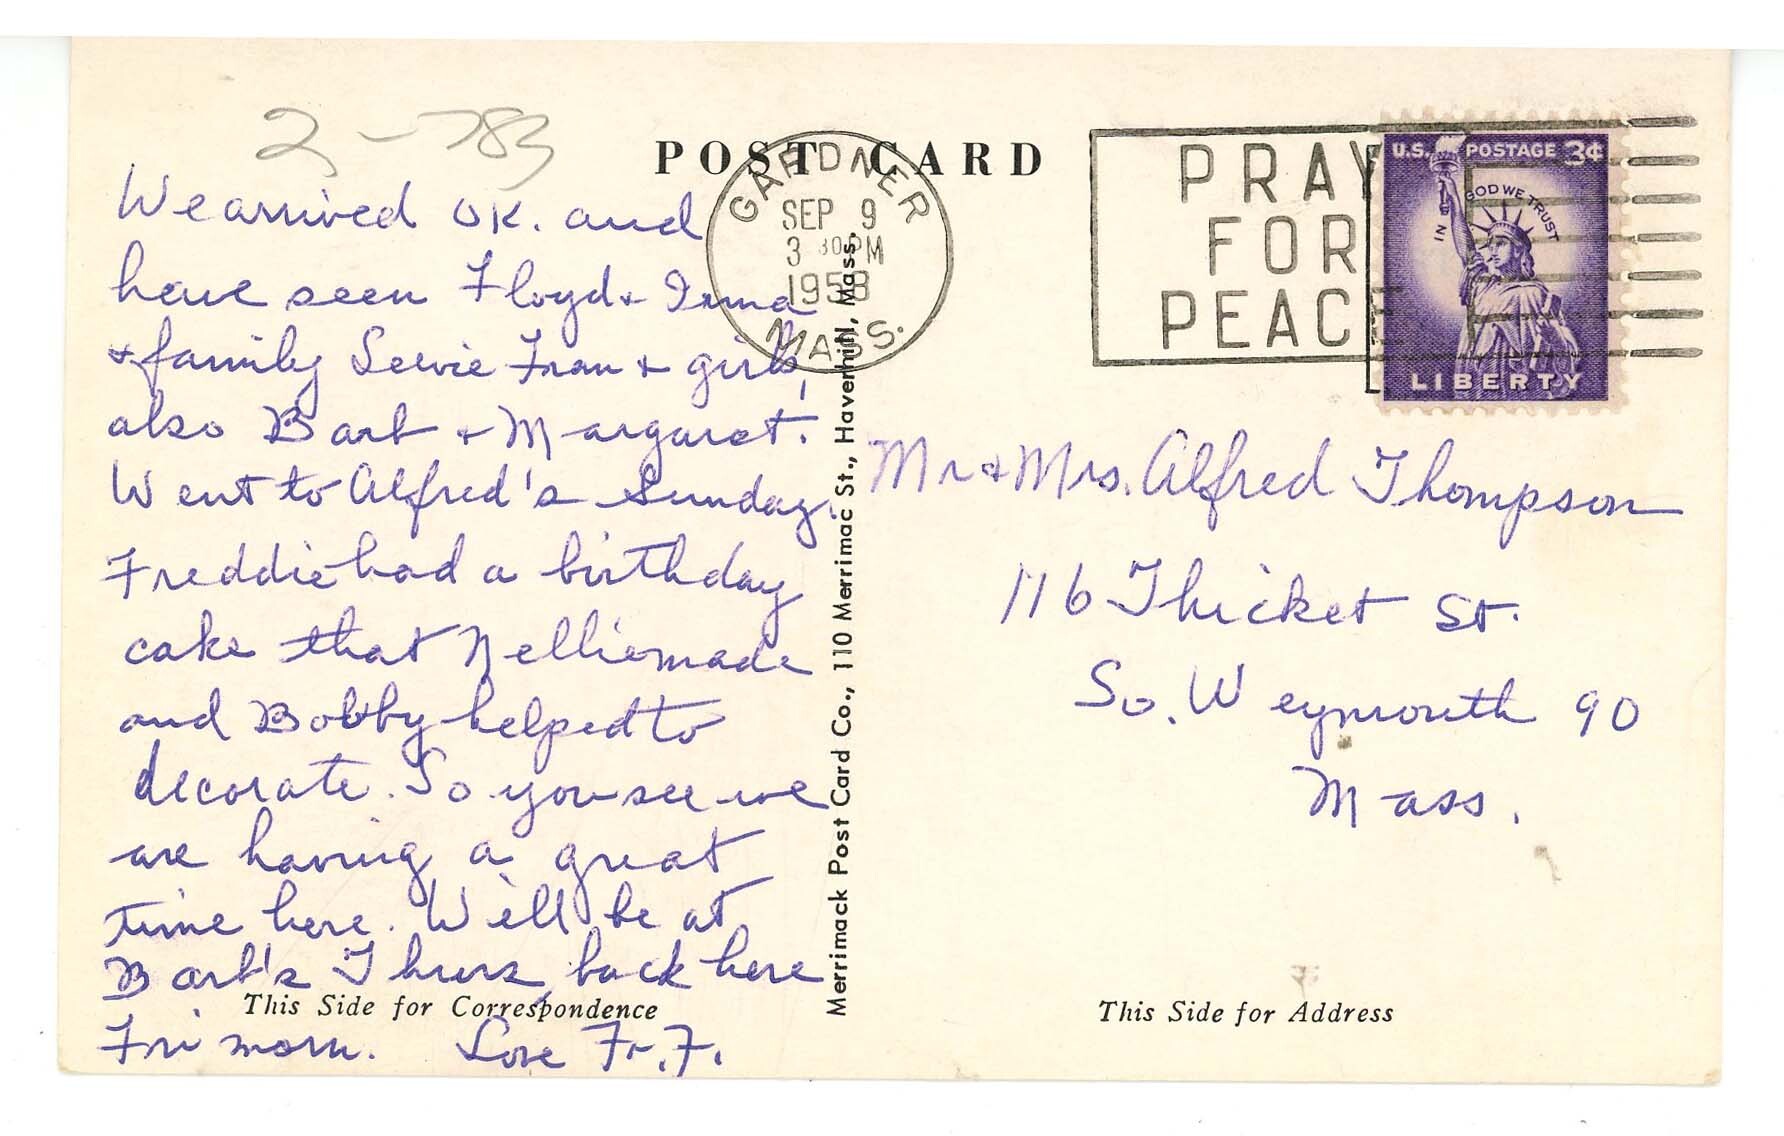 2-783
POST CARD
GARDNER
SEP 9
3 30 PM
1958
MASS.
PRAY
FOR
PEACE
U.S. POSTAGE 3¢
IN GOD WE TRUST
LIBERTY
We arrived OK. and
have seen Floyd & Irma
& family Lewie Fran & girls,
also Barb & Margaret.
Went to Alfred's Sunday.
Freddie had a birthday
cake that Nellie made
and Bobby helped to
decorate. So you see we
are having a great
time here. Will be at
Barb's Thurs, back here
Fri morn. Love Fr. F.
This Side for Correspondence
Merrimack Post Card Co., 110 Merrimac St., Haverhill, Mass.
Mr & Mrs. Alfred Thompson
116 Thicket St.
So. Weymouth 90
Mass.
This Side for Address